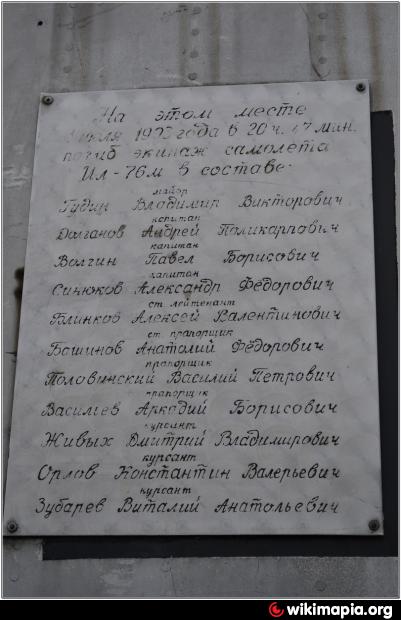 На этом месте
июля 19 года в 20 ч. 47 мин.
погиб экипаж самолета
Ил-76м в составе:
майор
Гудин Владимир Викторович
капитан
Долганов Андрей Поликарпович
капитан
Волгин Павел Борисович
капитан
Синюков Александр Фёдорович
ст. лейтенант
Блинков Алексей Валентинович
ст. прапорщик
Башинов Анатолий Фёдорович
прапорщик
Половинский Василий Петрович
прапорщик
Василтев Аркадий Борисович
курсант
Живых Дмитрий Владимирович
курсант
Орлов Константин Валерьевич
курсант
Зубарев Виталий Анатольевич
wikimapia.org